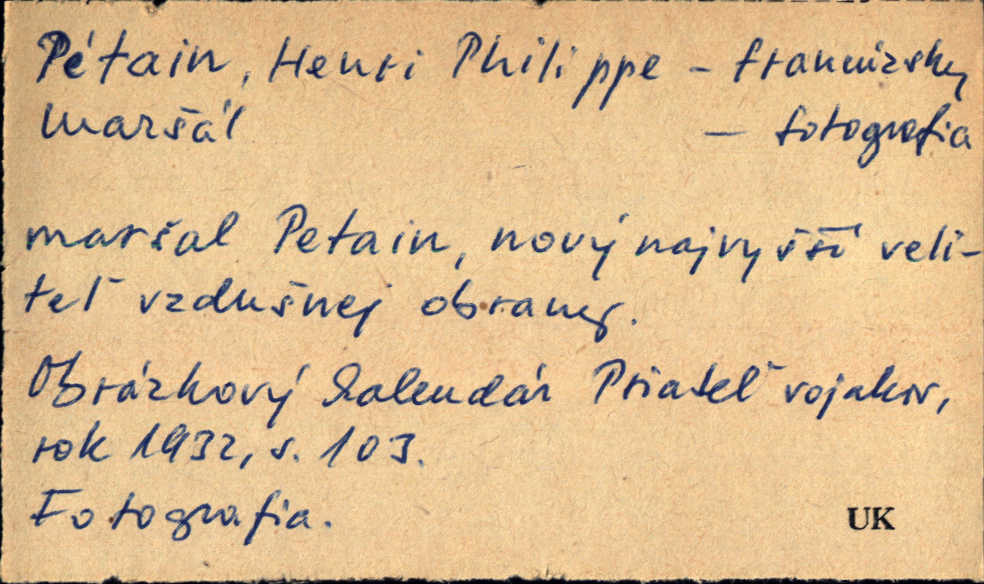 Pétain, Henri Philippe – francúzsky
maršál – fotografia
maršal Petain, nový najvyšší veli-
teľ vzdušnej obrany.
Obrázkový kalendár Priateľ vojakov,
rok 1932, s. 103.
Fotografia.
UK